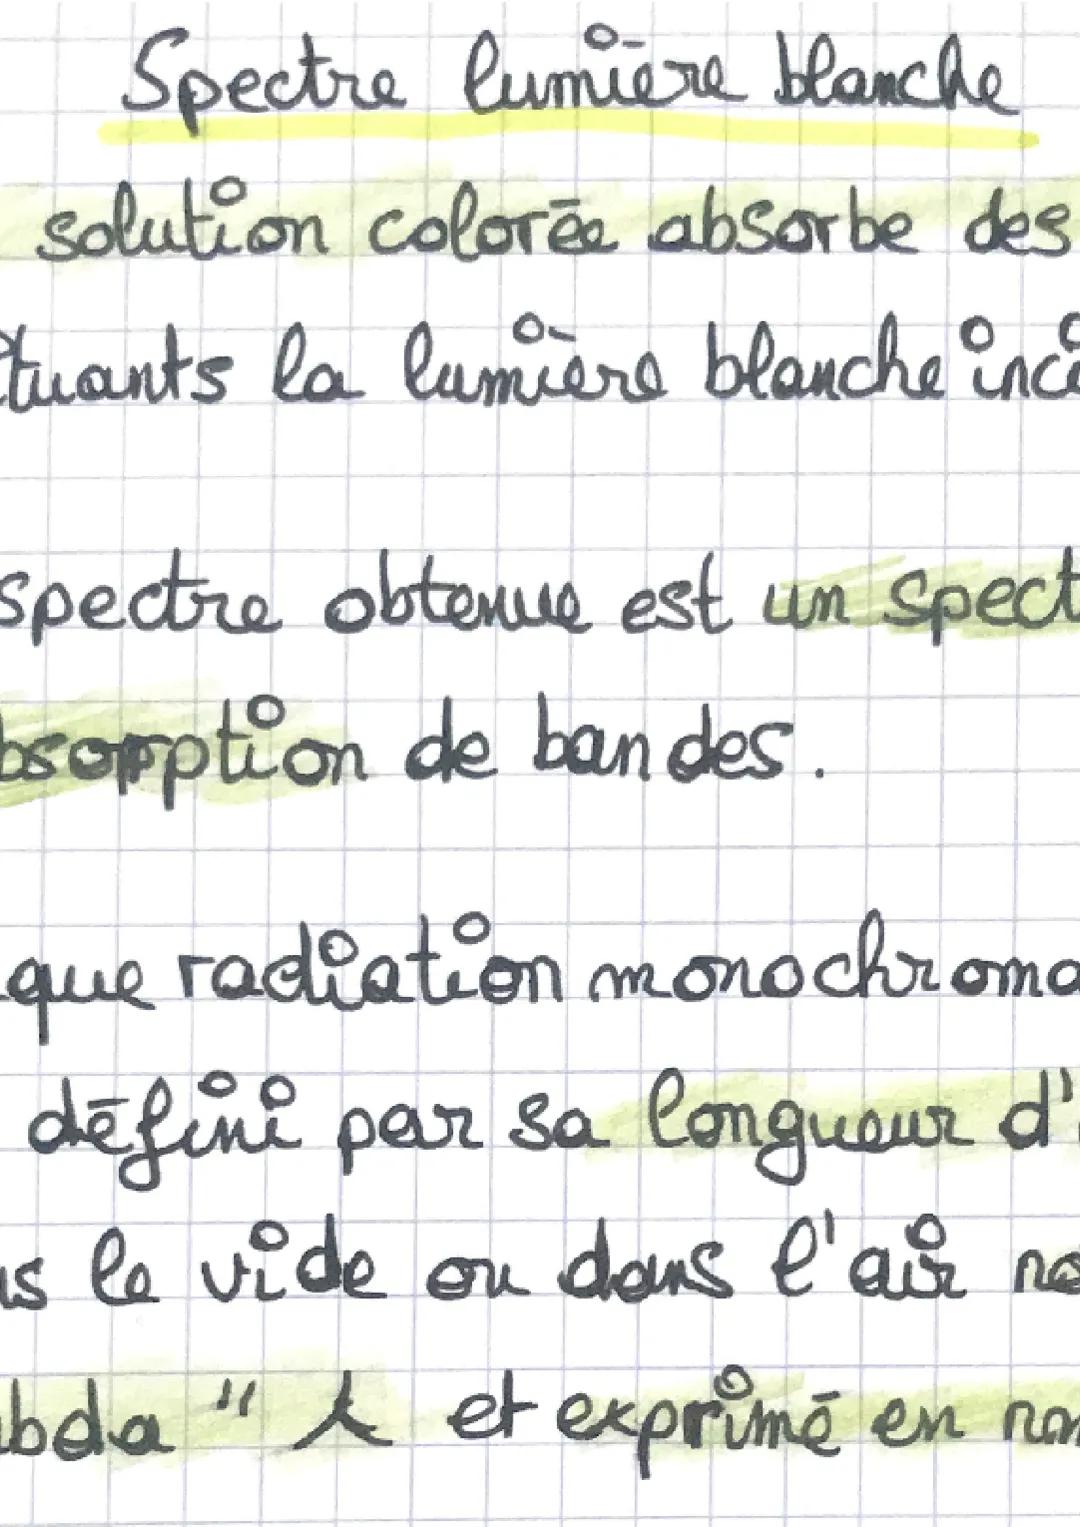 Spectre lumière blanche
solution colorée absorbe des
tuants la lumière blanche inci
spectre obtenue est un spect
bsorption de bandes.
que radiation monochroma
défini par sa longueur d'
s le vide ou dans l'air no
bda " λ et exprimé en nan